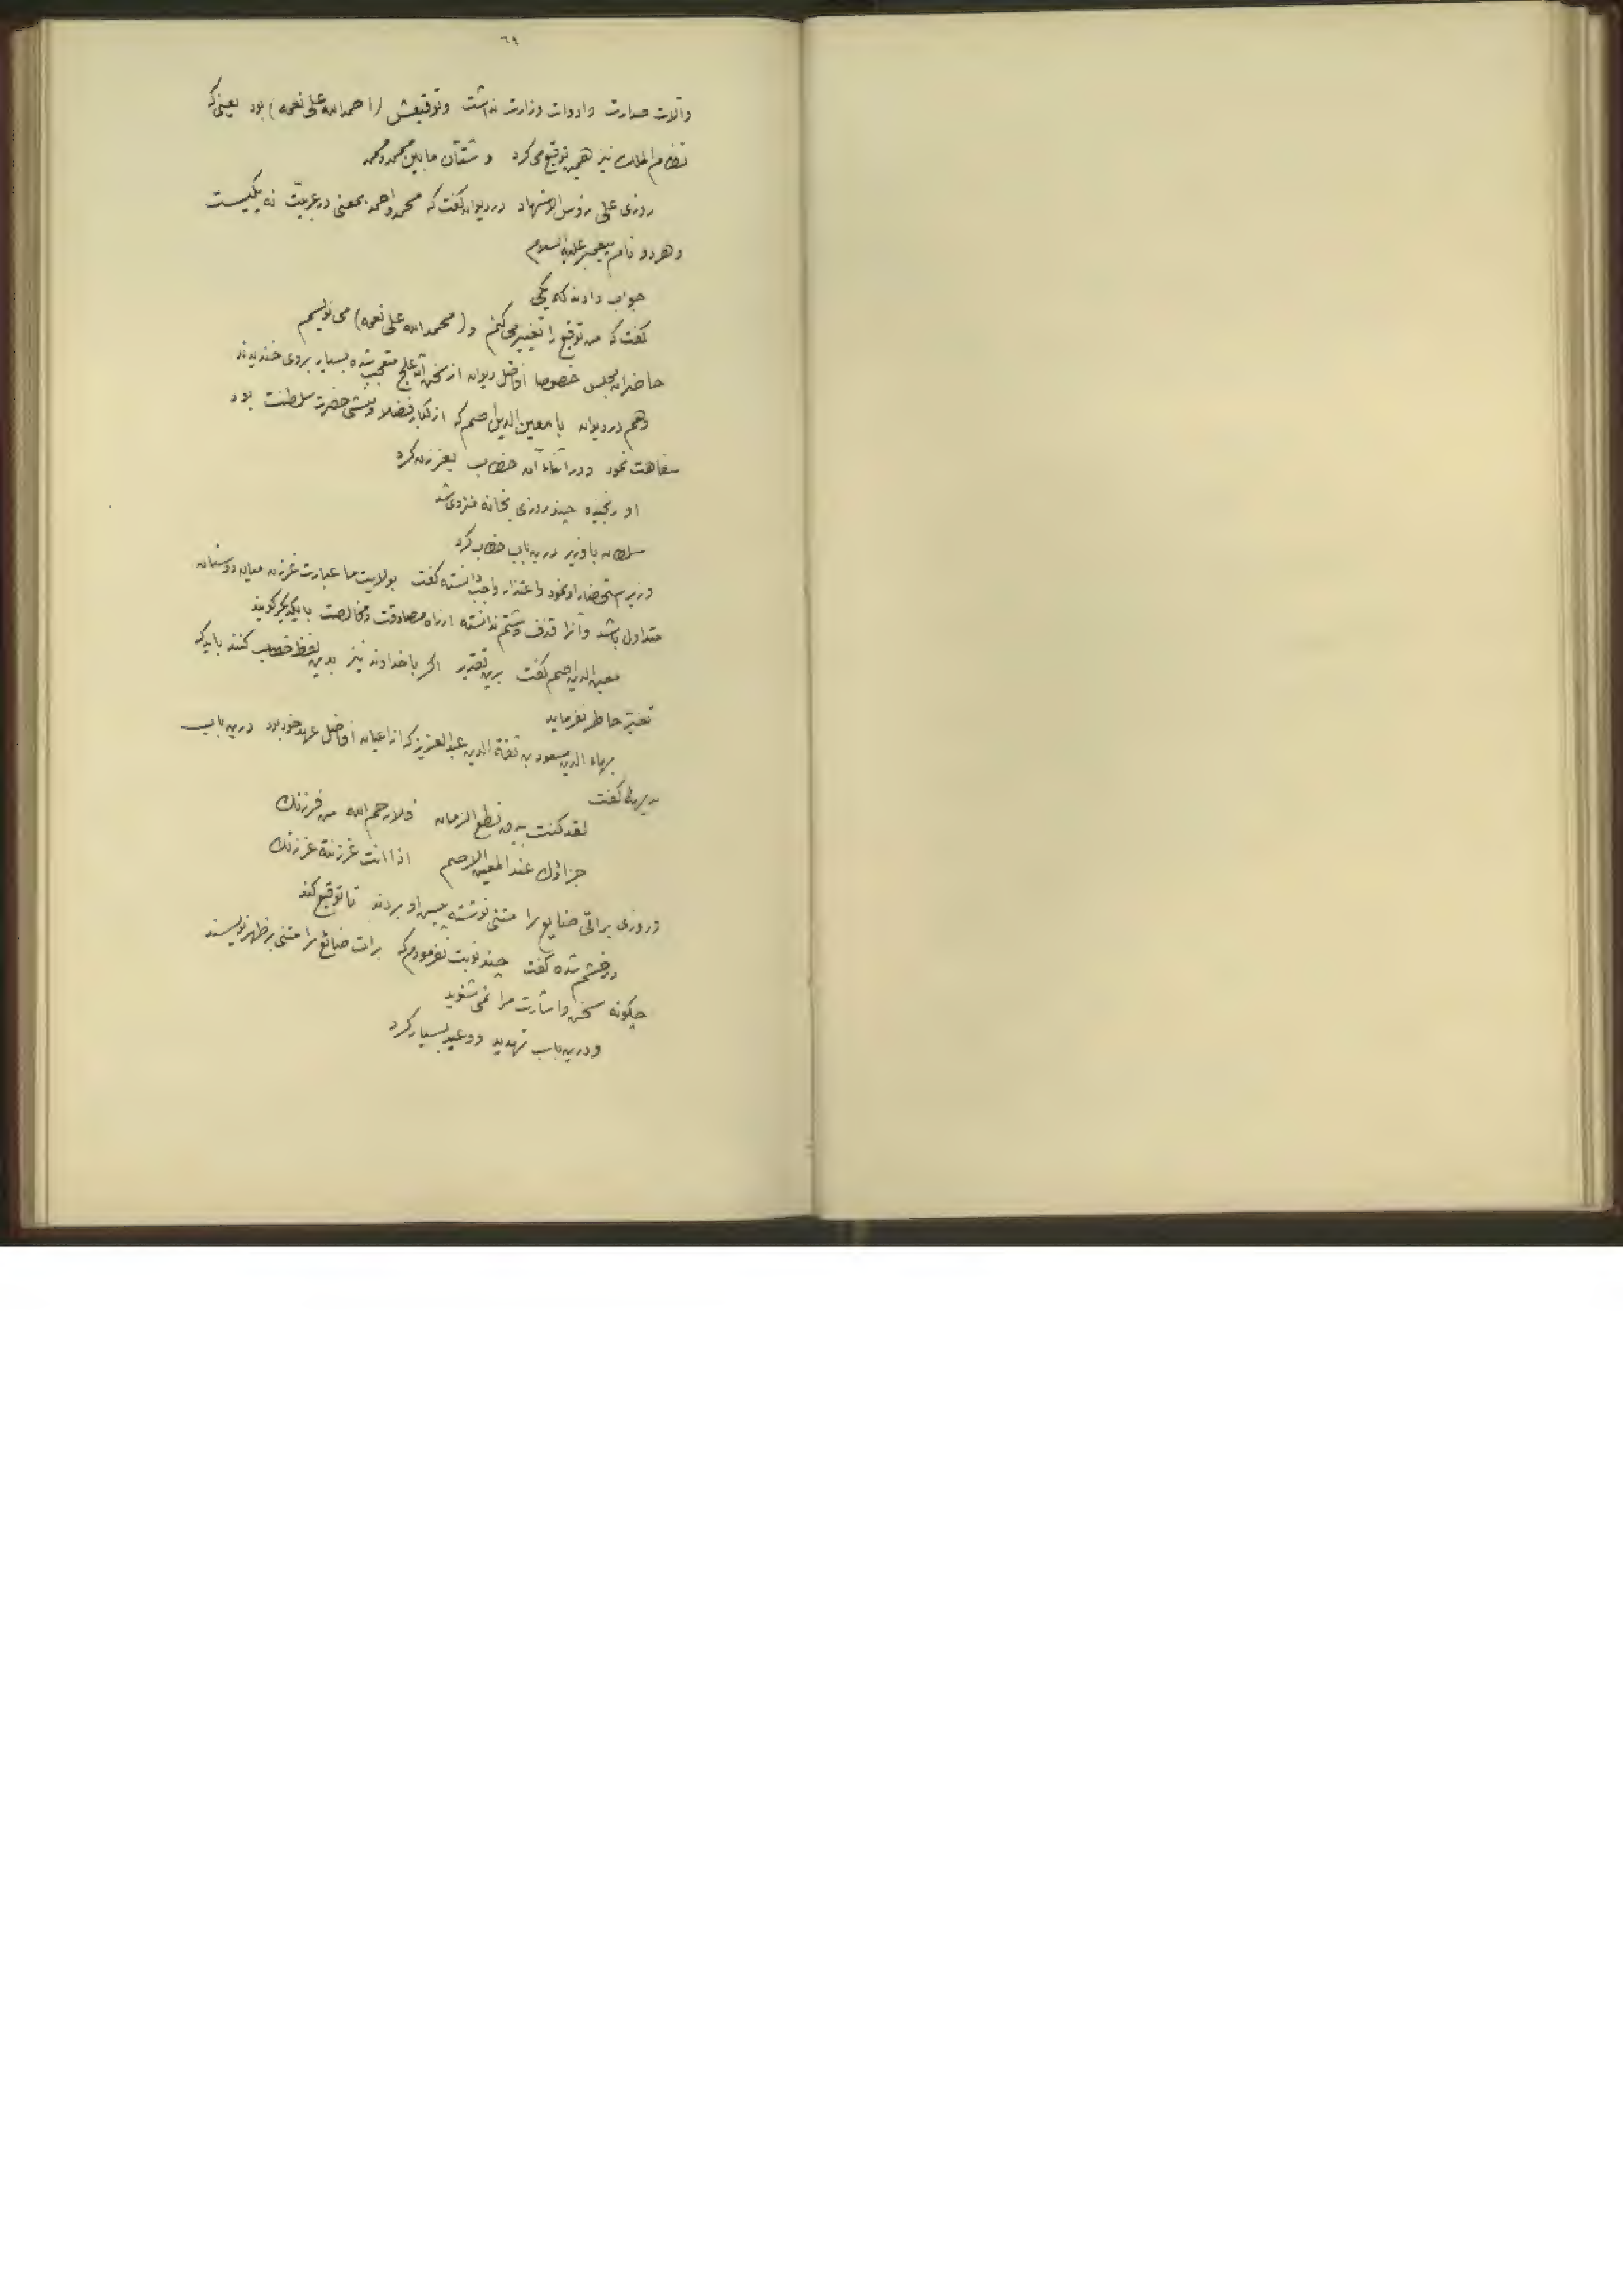 ٦٩
وآلات صدارت وادوات وزارت نداشت وتوقیعش (احمد الله علی نعمه) بود یعنی که
نظام الملک نیز همین توقیع می کرد و شتّان مابین محمد ومحمد
روزی علی رؤس الاشهاد در دیوان گفت که محمد واحمد بمعنی در عربیّت نه یکیست
وهر دو نام پیغمبر علیه السلام
جواب دادند که یکی
گفت که من توقیع را تغییر می کنم و (محمد الله علی نعمه) می نویسم
حاضران مجلس خصوصا افاضل دیوان از سخن آن علج متعجب شده بسیار بروی خندیدند
وهم در دیوان با معین الدین اصم که از کبار فضلا ومنشی حضرت سلطنت بود
سفاهت نمود ودر اثناء آن خطاب بغرزن کرد
او رنجیده چند روزی بخانه منزوی شد
سلطان با وزیر درین باب خطاب کرد
وزیر استحضار او نمود واعتذار واجب دانسته گفت بولایت ما عبارت غرزن میان دوستان
متداول باشد وآنرا قذف وشتم ندانسته از راه مصادقت ومخالصت با یکدیگر گویند
معین الدین اصم گفت برین تقدیر اگر با خداوند نیز بدین لفظ خطاب کنند باید که
تغیّر خاطر نفرماید
بهاء الدین مسعود بن ثقة الدین عبد العزیز که از اعیان افاضل عهد خود بود درین باب
بدیهة گفت
لقد کنت بیدق نطع الزمان فلا رحم الله من فرزنک
جزاؤک عند المعین الاصم اذا انت غرزنته غرزنک
وروزی براتی ضایع را مثنی نوشته پیش او بردند تا توقیع کند
در خشم شده گفت چند نوبت نفرمودم که برات ضائع را مثنی بر ظهر نویسند
چگونه سخن واشارت مرا نمی شنوید
ودرین باب تهدید ووعید بسیار کرد